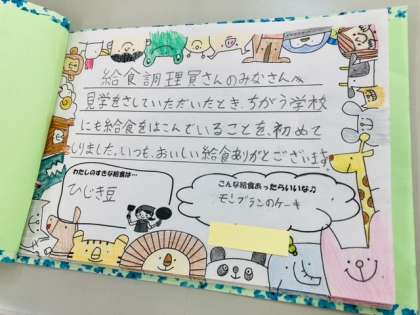 給食調理員さんのみなさんへ
見学をさしていただいたとき、ちがう学校
にも給食をはこんでいることを、初めて
しりました。いつも、おいしい給食ありがとございます。
わたしのすきな給食は…
ひじき豆
こんな給食あったらいいな♪
モンブランのケーキ